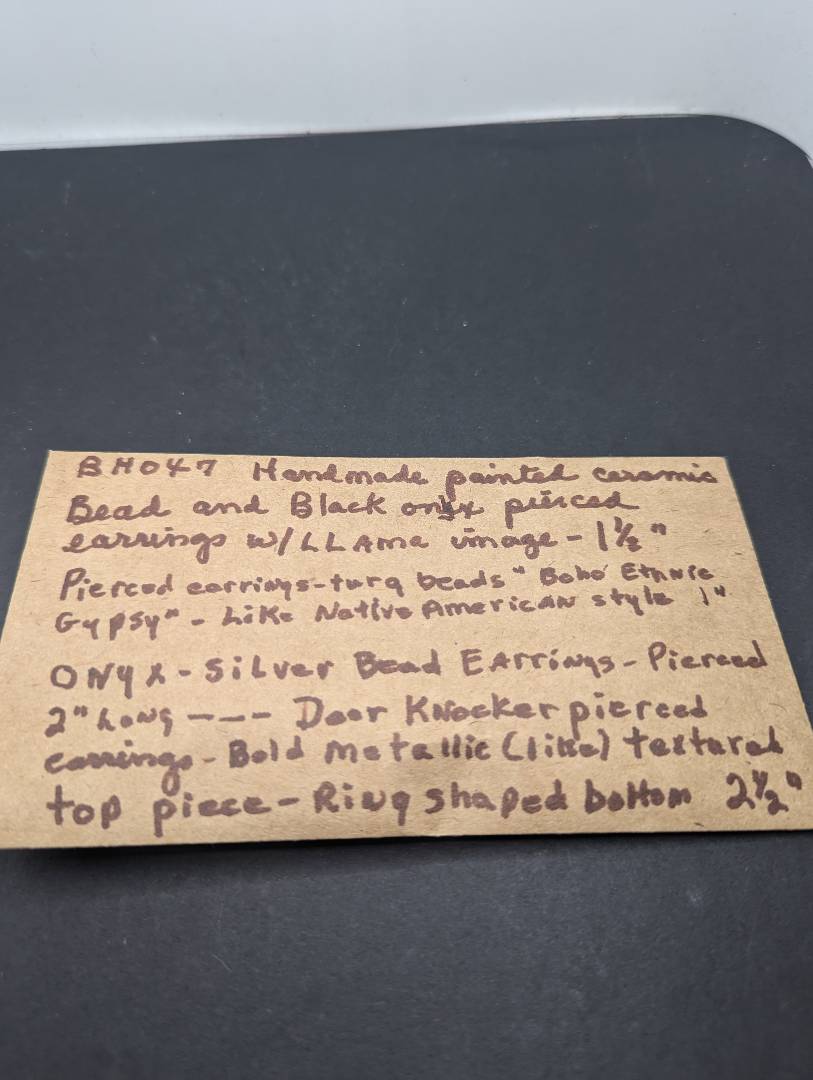 BH047 Handmade painted ceramic
Bead and Black onyx pierced
earrings w/LLAma image - 1 1/2"
Pierced earrings-turq beads "Boho Ethnic
Gypsy" - Like Native American style 1"
ONyx - Silver Bead EArrings - Pierced
2" Long --- Door Knocker pierced
earrings - Bold metallic (like) textured
top piece - Ring shaped bottom 2 1/2"